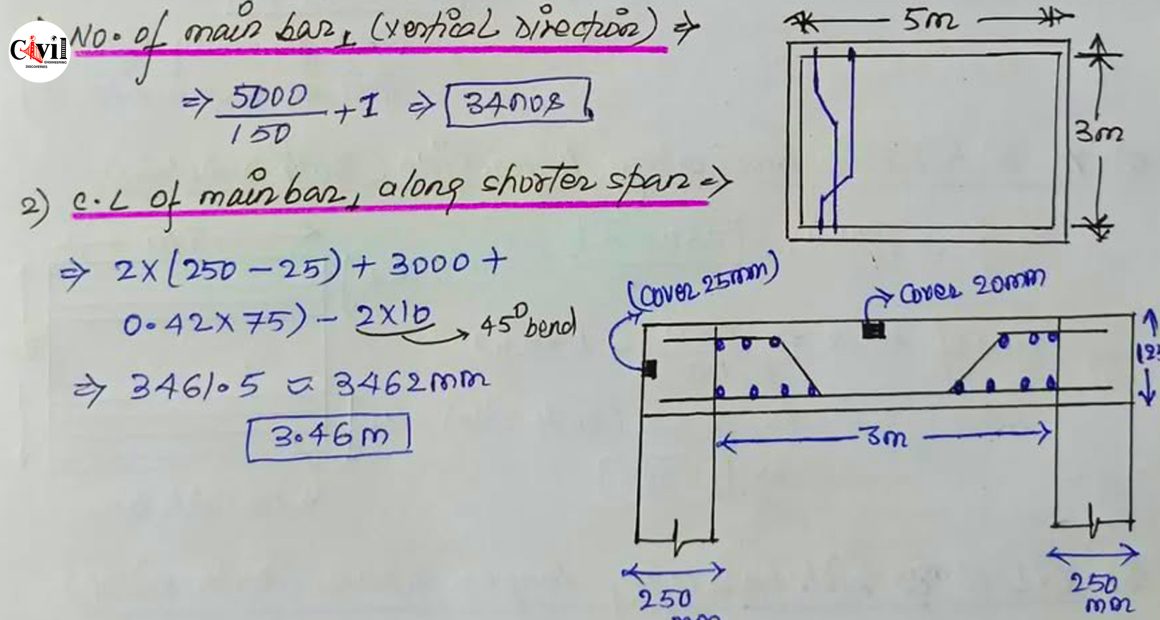 Civil
ENGINEERING
DISCOVERIES
No. of main bar, (vertical direction) ⇒
⇒ 5000/150 + 1 ⇒ 34 nos
2) C.L of main bar, along shorter span ⇒
⇒ 2×(250 – 25) + 3000 +
0.42×75) – 2×10 → 45° bend
⇒ 3461.5 ≈ 3462 mm
3.46 m
5m
3m
(cover 25mm)
cover 20mm
3m
250
mm
250
mm